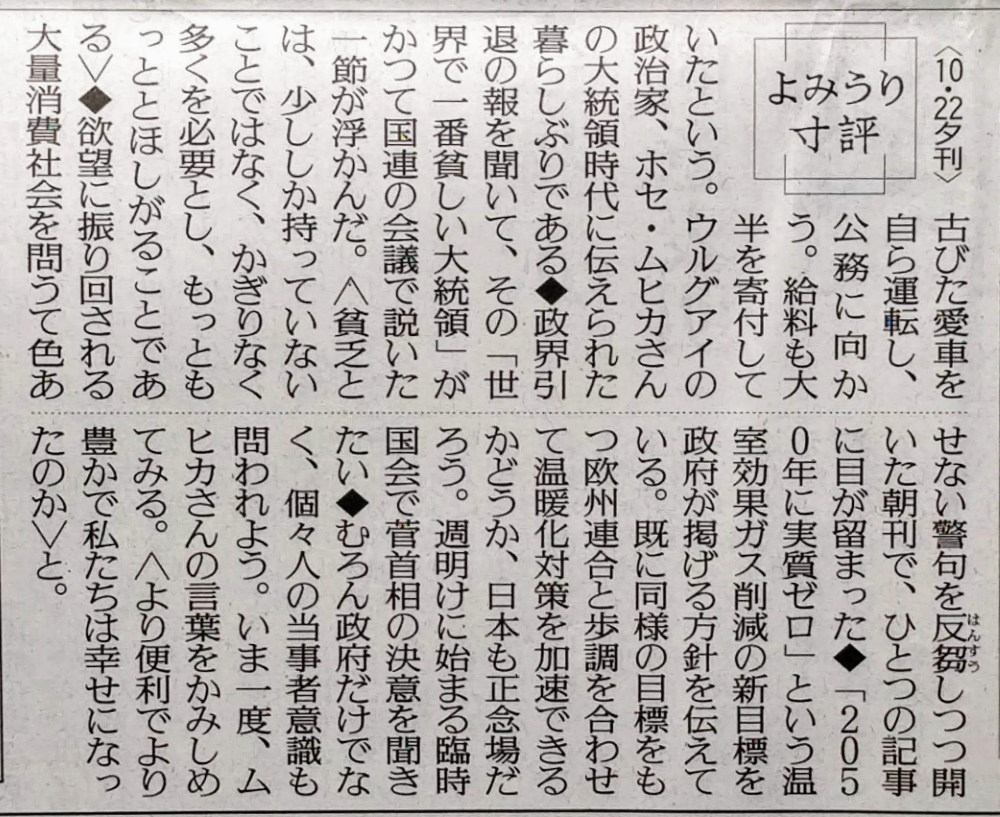 〈10・22夕刊〉
よみうり
寸評
古びた愛車を
自ら運転し、
公務に向か
う。給料も大
半を寄付して
いたという。ウルグアイの
政治家、ホセ・ムヒカさん
の大統領時代に伝えられた
暮らしぶりである◆政界引
退の報を聞いて、その「世
界で一番貧しい大統領」が
かつて国連の会議で説いた
一節が浮かんだ。〈貧乏と
は、少ししか持っていない
ことではなく、かぎりなく
多くを必要とし、もっとも
っととほしがることであ
る〉◆欲望に振り回される
大量消費社会を問うて色あ
せない警句を反芻しつつ開
はんすう
いた朝刊で、ひとつの記事
に目が留まった◆「205
0年に実質ゼロ」という温
室効果ガス削減の新目標を
政府が掲げる方針を伝えて
いる。既に同様の目標をも
つ欧州連合と歩調を合わせ
て温暖化対策を加速できる
かどうか、日本も正念場だ
ろう。週明けに始まる臨時
国会で菅首相の決意を聞き
たい◆むろん政府だけでな
く、個々人の当事者意識も
問われよう。いま一度、ム
ヒカさんの言葉をかみしめ
てみる。〈より便利でより
豊かで私たちは幸せになっ
たのか〉と。